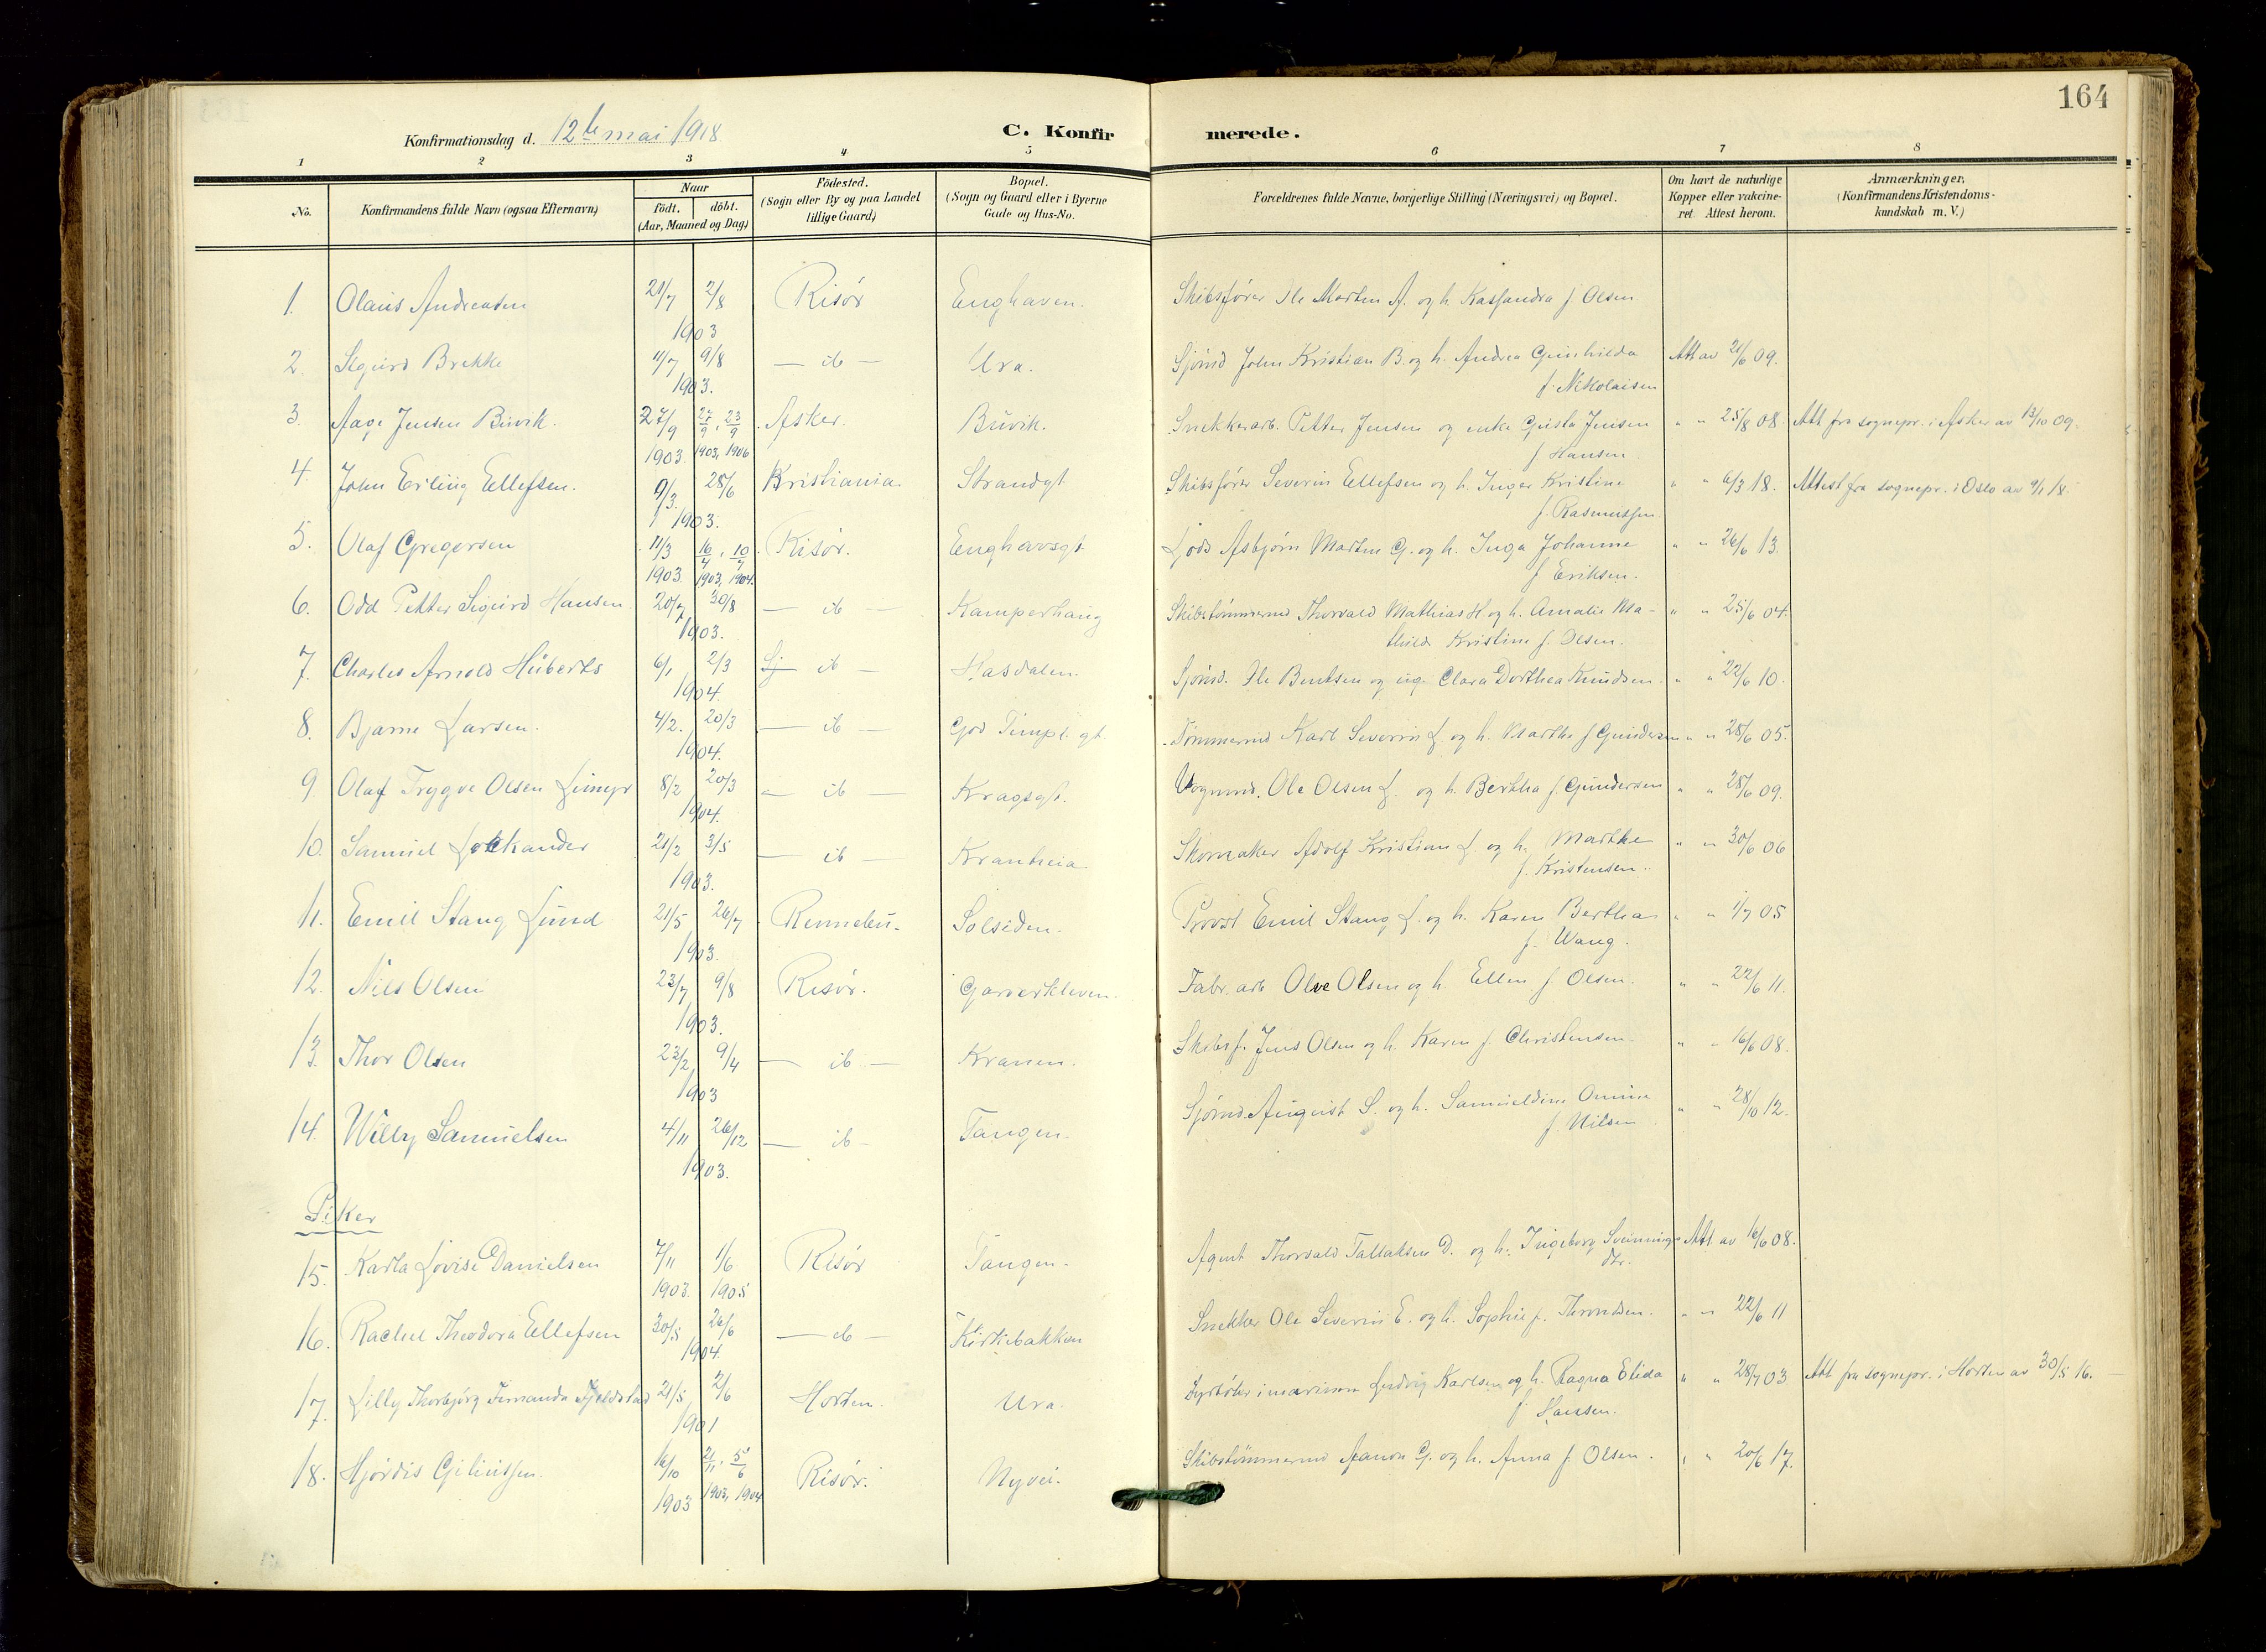 164
Konfirmationsdag d. 12te mai 1918
C. Konfirmerede.
1 2 3 4 5 6 7 8
No. Konfirmandens fulde Navn (ogsaa Efternavn) Naar födt. döbt. (Aar, Maaned og Dag) Födested. (Sogn eller By og paa Landet tillige Gaard) Bopæl. (Sogn og Gaard eller i Byerne Gade og Hus-No. Forældrenes fulde Navne, borgerlige Stilling (Næringsvei) og Bopæl. Om havt de naturlige Kopper eller vakcineret. Attest herom. Anmærkninger, (Konfirmandens Kristendomskundskab m. V.)
1. Olaus Andreasen 21/7 2/8 Risör Enghaven. Skibsfører Ole Morten A. og h. Kassandra f. Olsen
1903
2. Sigurd Brekke 11/7 9/8 — ib — Ura. Sjömd John Kristian B. og h. Andrea Gunhilda Att av 21/6 09.
1903. f. Nikolaisen
3. Aage Jensen Buvik. 27/9 27/9, 23/9 Asker. Buvik. Snekkerarb. Petter Jensen og enke Gusta Jensen " " 25/8 08. Att fra sognepr. i Asker av 13/10 09.
1903. 1903, 1906 f Hansen.
4. John Erling Ellefsen. 9/3. 28/6 Kristiania Strandgt Skibsfører Severin Ellefsen og h. Inger Kristine " " 6/3 18. Attest fra sognepr. i Oslo av 9/1 18.
1903. f. Rasmussen.
5. Olaf Gregersen 11/3 16/4, 10/7 Risör. Enghavsgt Lods Asbjørn Martin G. og h. Inga Johanne " " 26/6 13.
1903. 1903, 1904. f Eriksen.
6. Odd Petter Sigurd Hansen. 20/7 30/8 — ib — Kamperhaug Skibstömmermd Thorvald Mathias H og h. Amalie Ma- " " 25/6 04.
1903. thilde Kristine f. Olsen.
7. Charles Arnold Huberts 6/1 2/3 — ib — Hasdalen. Sjömd. Ole Bentsen og ug. Clara Dorthea Knudsen. " " 22/6 10.
1904.
8. Bjarne Larsen. 4/2. 20/3 — ib — Tömmermd Karl Severin L. og h. Marthe f Gundersen " " 28/6 05.
1904.
9. Olaf Trygve Olsen 8/2 20/3 — ib — Kragsgt. Vognmd. Ole Olsen L. og h. Bertha f Gundersen " " 28/6 09.
1904.
10. Samuel Lokkander 21/2 3/5 — ib — Kranheia Skomaker Adolf Kristian L og h. Marthe " " 30/6 06
1903. f. Kristensen.
11. Emil Stang Lund 21/5 26/7 Rennebu. Solsiden. Provst Emil Stang L. og h. Karen Bertha " " 1/7 05
1903. f. Wang.
12. Nils Olsen 23/7 9/8 Risör. Garverkleven. Fabr. arb Olve Olsen og h. Ellen f. Olsen. " " 22/6 11.
1903.
13. Thor Olsen 22/2 9/4 — ib — Kranen. Skibsf. Jens Olsen og h. Karen f. Christensen. " " 16/6 08.
1903
14. Willy Samuelsen 4/11 26/12 — ib — Tangen. Sjömd. August S. og h. Samueldine Omine " " 28/10 12.
1903. f. Nilsen
Piker
15. Karla Lovise Danielsen 7/11 1/6 Risör Tangen. Agent Thorvald Tallaksen D. og h. Ingeborg Sveinnings- Att av 16/6 08.
1903. 1905 dtr.
16. Rachel Theodora Ellefsen 30/5 26/6 — ib — Kirkebakken Snekker Ole Severin E. og h. Sophie f. Throndsen. " " 22/6 11
1904.
17. Lilly Thorbjörg Fernanda Fjeldstad 21/5 2/6 Horten. Ura. Fyrböter i marinen Ludvig Karlsen og h. Ragna Elida " " 28/7 03 Att fra sognepr. i Horten av 30/5 16. —
1901 f Hansen.
18. Hjördis Giliussen. 16/10 21/11, 5/6 Risör. Nyvei. Skibstömmermd Aanon G. og h. Anna f. Olsen. " " 20/6 17.
1903 1903, 1904